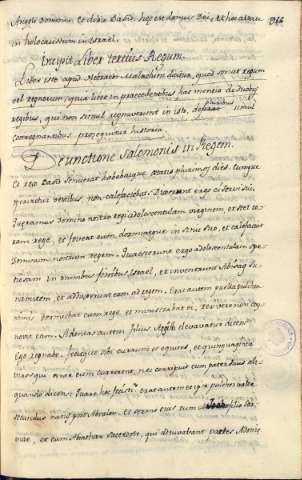 Angeli Domini, et dixit David hæc est domus Dei, et hoc altare 366
in holocaustum in Israel.
Incipit Liber tertius Regum.
Liber iste apud Hebræos Malachim dicitur, quod sonat regum
vel regnorum, quia licet in præcedentibus fiat mentio de duobus
regibus, qui non simul regnaverunt in isto, de pluribus simul
coregnantibus prosequitur historia.
De unctione Salomonis in Regem.
Et rex David senuerat habebatque ætatis plurimos dies. Cumque
operiretur vestibus non calefiebat. Dixerunt ergo ei servi sui,
Quæramus Domino nostro regi adolescentulam virginem, et stet co-
ram rege, et foveat eum, dormiatque in sinu suo, et calefaciat
Dominum nostrum regem. Quæsierunt ergo adolescentulam spe-
ciosam in omnibus finibus Israel, et invenerunt Abisag Su-
namitem, et adduxerunt eam ad regem. Erat autem puella pulchra
nimis dormiebat cum rege, et ministrabat ei, rex vero non cog-
novit eam. Adonias autem filius Agith elevabatur dicens
Ego regnabo. Fecitque sibi currum et equites, et quinquaginta
viros qui ante eum currerent, nec corripuit eum pater suus ali-
quando dicens: Quare hoc fecisti? Erat autem et ipse pulcher valde
secundus natu post Absalon. Et sermo eius cum Joab filio Sar-
viæ, et cum Abiathar sacerdote, qui adiuvabant partes Adoniæ.